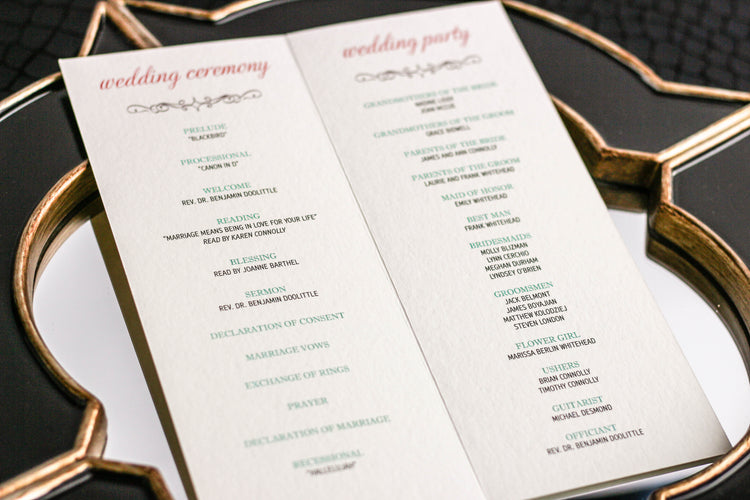 wedding ceremony
PRELUDE
"BLACKBIRD"
PROCESSIONAL
"CANON IN D"
WELCOME
REV. DR. BENJAMIN DOOLITTLE
READING
"MARRIAGE MEANS BEING IN LOVE FOR YOUR LIFE"
READ BY KAREN CONNOLLY
BLESSING
READ BY JOANNE BARTHEL
SERMON
REV. DR. BENJAMIN DOOLITTLE
DECLARATION OF CONSENT
MARRIAGE VOWS
EXCHANGE OF RINGS
PRAYER
DECLARATION OF MARRIAGE
RECESSIONAL
"HALLELUJAH"
wedding party
GRANDMOTHERS OF THE BRIDE
GRANDMOTHERS OF THE GROOM
GRACE BIDWELL
PARENTS OF THE BRIDE
JAMES AND ANN CONNOLLY
PARENTS OF THE GROOM
LAURIE AND FRANK WHITEHEAD
MAID OF HONOR
EMILY WHITEHEAD
BEST MAN
FRANK WHITEHEAD
BRIDESMAIDS
MOLLY BLIZMAN
LYNN CERCHIO
MEGHAN DURHAM
LYNDSEY O'BRIEN
GROOMSMEN
JACK BELMONT
JAMES BOYAJIAN
MATTHEW KOLODZIEJ
STEVEN LONDON
FLOWER GIRL
MARISSA BERLIN WHITEHEAD
USHERS
BRIAN CONNOLLY
TIMOTHY CONNOLLY
GUITARIST
MICHAEL DESMOND
OFFICIANT
REV. DR. BENJAMIN DOOLITTLE